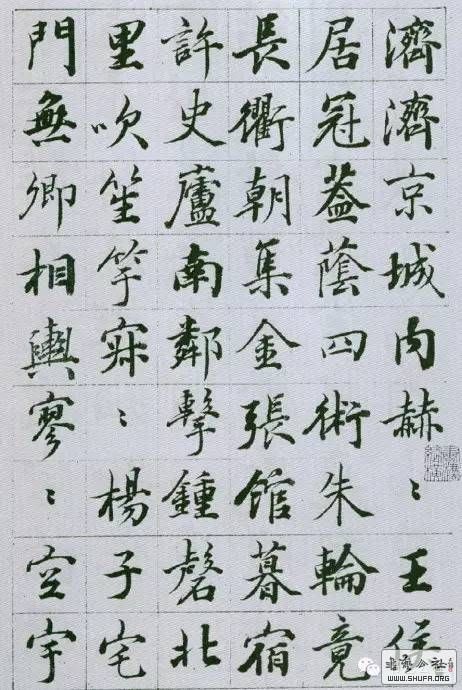 濟濟京城内赫〻王侯
居冠蓋蔭四術朱輪竟
長衢朝集金張館暮宿
許史廬南鄰擊鍾磬北
里吹笙竽寂〻楊子宅
門無卿相輿寥〻空宇
WWW.SHUFA.ORG